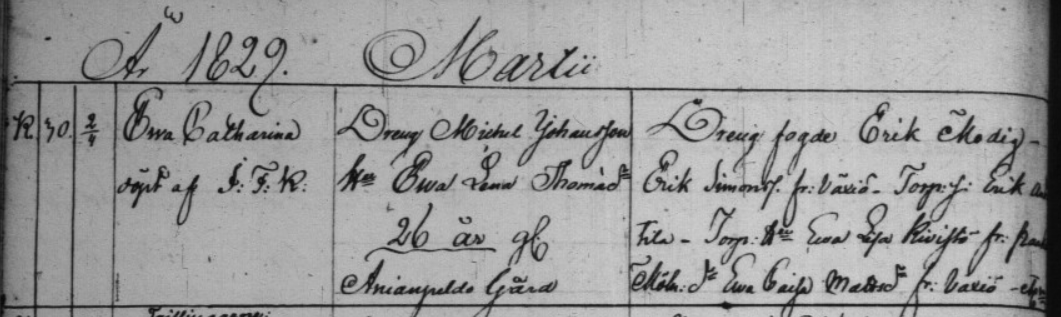 År 1829. Martii
K. 30. 2/4 Ewa Catharina
döpt af I: F: K:
Dreng Michel Johansson
Hus Ewa Lena Thomasdr
26 år gl
Anianpeldo Gård
Dreng fogde Erik Modig -
Erik Simons. fr: Växiö - Torp: s: Erik
tila - Torp: Hu Ewa Lisa Rivistö fr:
Möln: dr Ewa Caisa Mattsdr fr: Vaxiö -